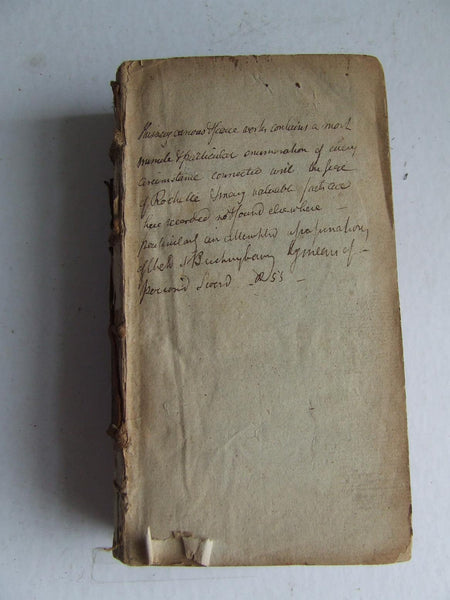 This very curious & scarce work contains a most
minute & particular enumeration of every
circumstance connected with the siege
of Rochelle & many valuable facts are
here recorded not found elsewhere —
particularly an attempted assassination
of the D. of Buckingham by means of
poisoned sword